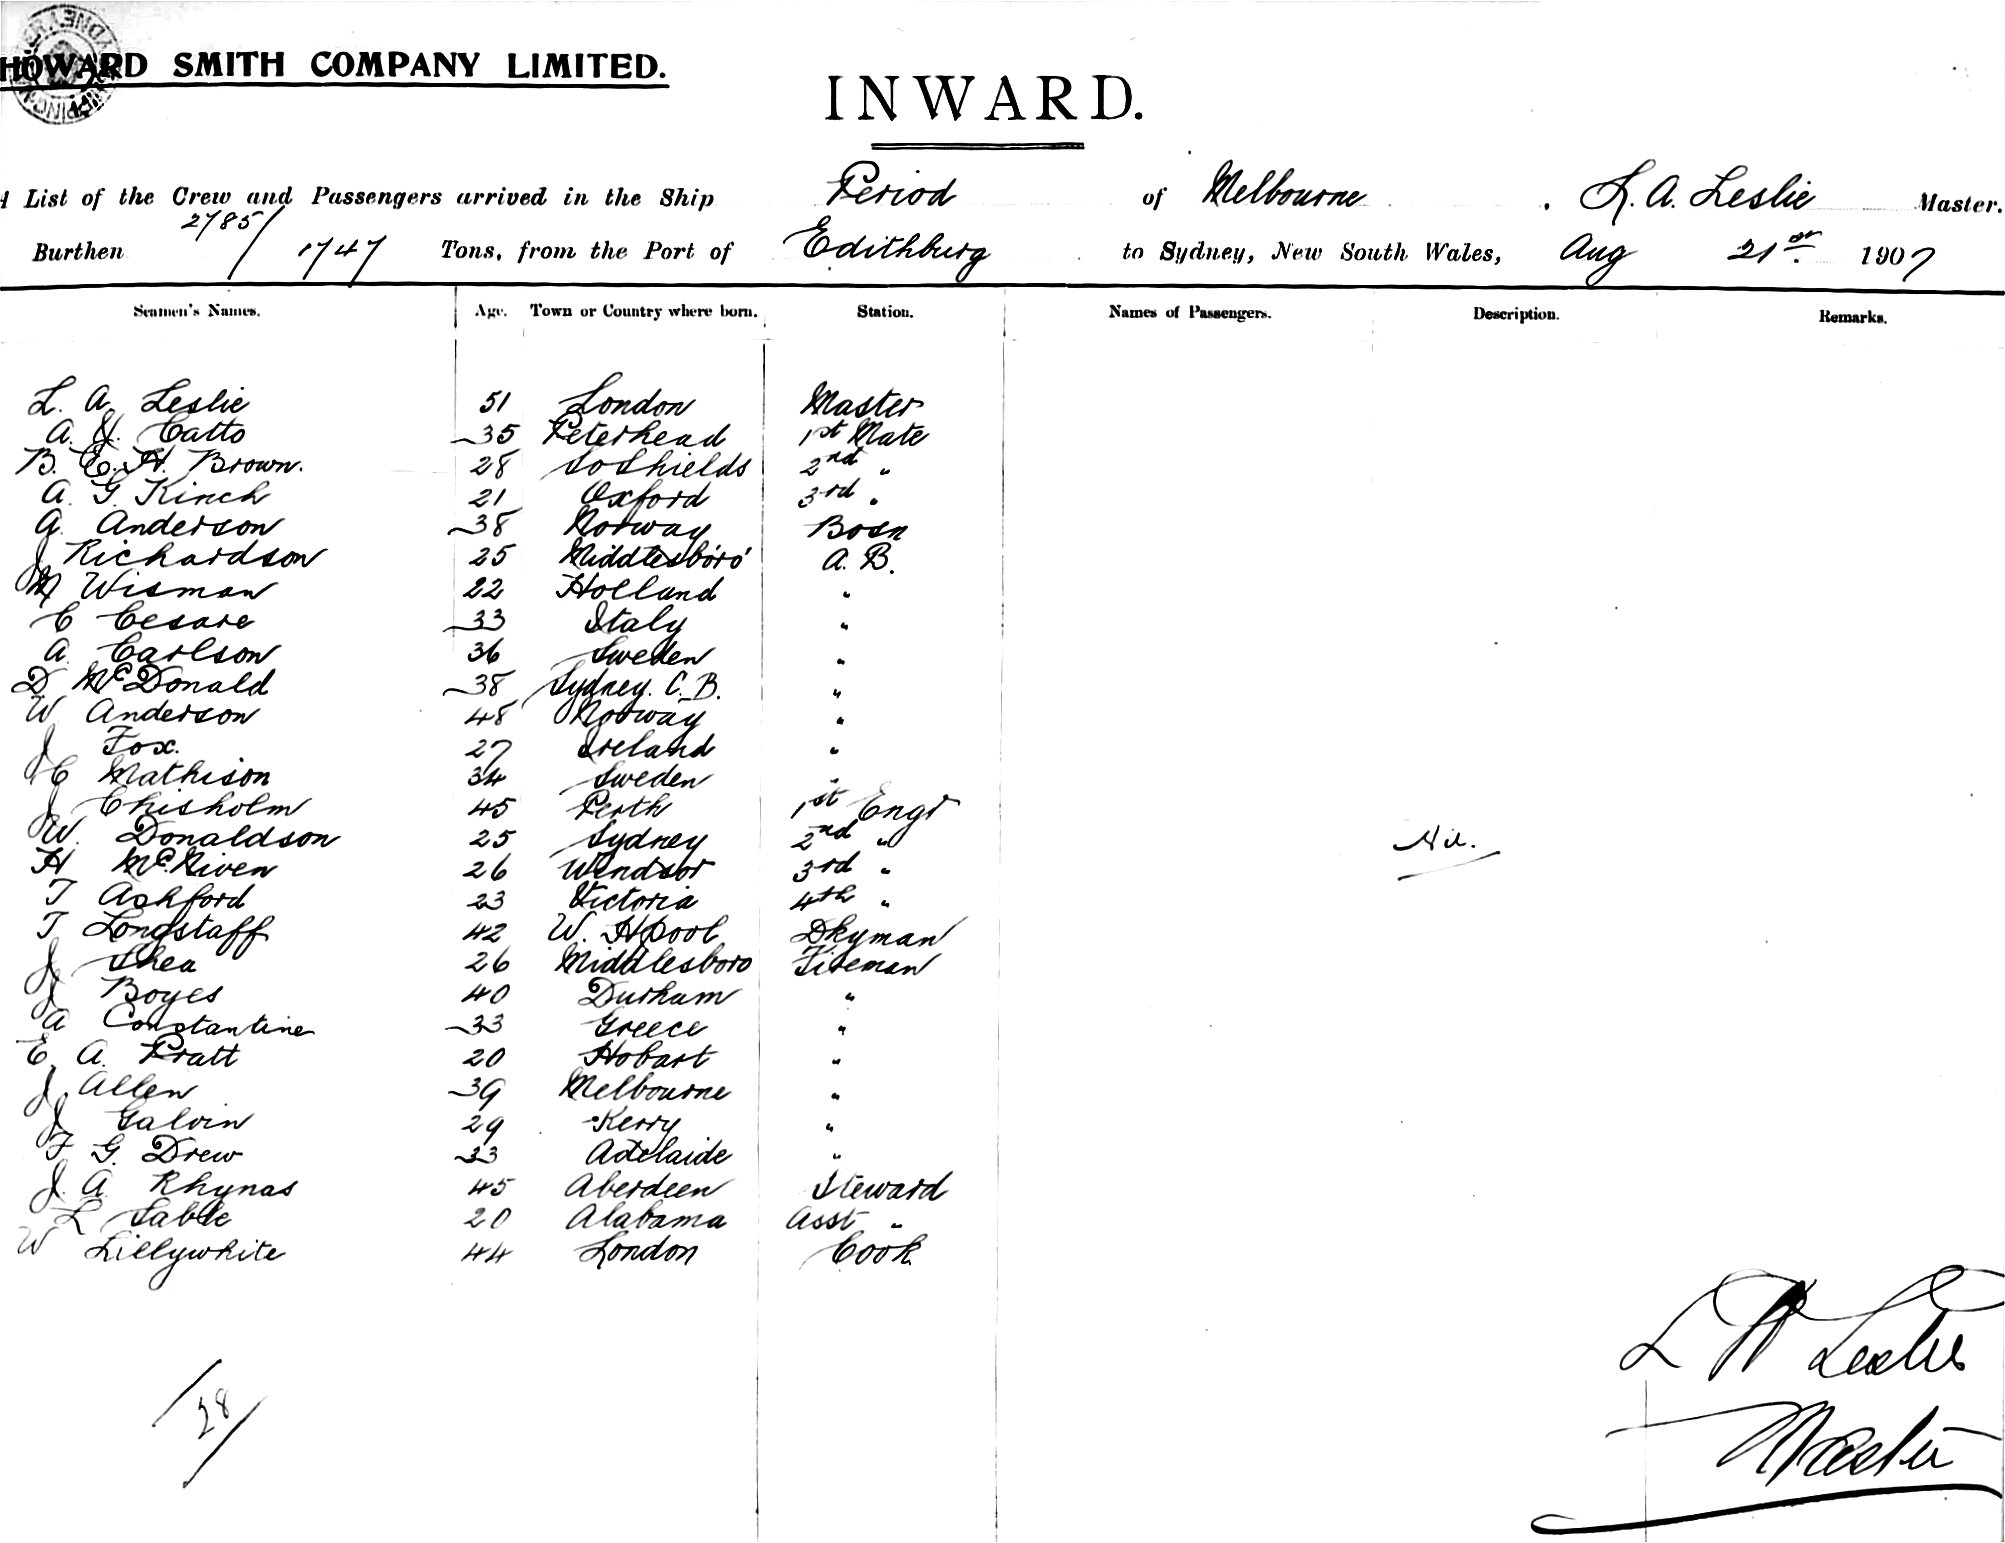 HOWARD SMITH COMPANY LIMITED.
INWARD.
A List of the Crew and Passengers arrived in the Ship Period of Melbourne, L. A. Leslie Master.
Burthen 2785/1747 Tons, from the Port of Edithburg to Sydney, New South Wales, Aug 21st 1907
Seamen's Names. Age. Town or Country where born. Station. Names of Passengers. Description. Remarks.
L. A. Leslie 51 London Master
A. J. Catto 35 Peterhead 1st Mate
B. E. H. Brown. 28 So Shields 2nd "
A. G. Kinch 21 Oxford 3rd "
A. Anderson 38 Norway Bosn
J Richardson 25 Middlesboro' A. B.
M Wisman 22 Holland "
C Cesare 33 Italy "
A. Carlson 36 Sweden "
D McDonald 38 Sydney. C. B. "
W Anderson 48 Norway "
J Fox. 27 Ireland "
C Mathison 34 Sweden "
J Chisholm 45 Perth 1st Engr
W. Donaldson 25 Sydney 2nd "
Nil.
H McNiven 26 Windsor 3rd "
T Ashford 23 Victoria 4th "
T Longstaff 42 W. Hpool Dkyman
J Shea 26 Middlesboro Fireman
J Boyes 40 Durham "
A Constantine 33 Greece "
E. A. Pratt 20 Hobart "
J Allen 39 Melbourne "
J Galvin 29 Kerry "
F G. Drew 33 Adelaide "
J. A. Rhynas 45 Aberdeen Steward
L Sable 20 Alabama Asst "
W Lillywhite 44 London Cook
L A Leslie
/28/
Master